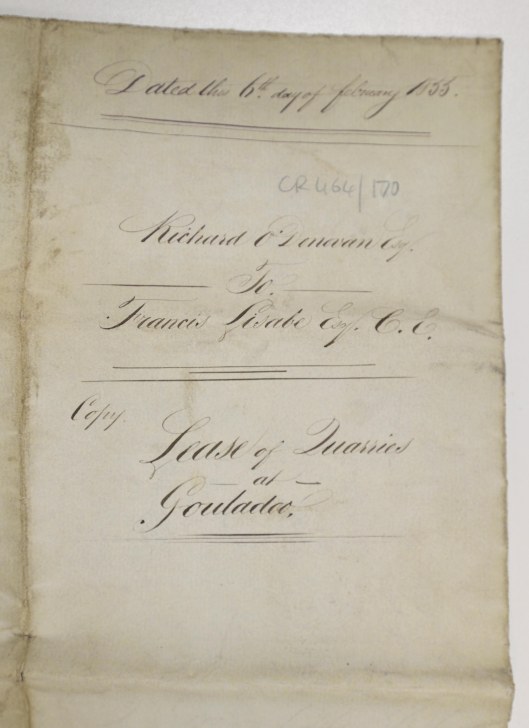 Dated this 6th. day of February 1855.
CR 464/170
Richard O'Donovan Esq.
To.
Francis Lisabe Esq. C. E.
Copy.
Lease of Quarries
at
Gouladoo.